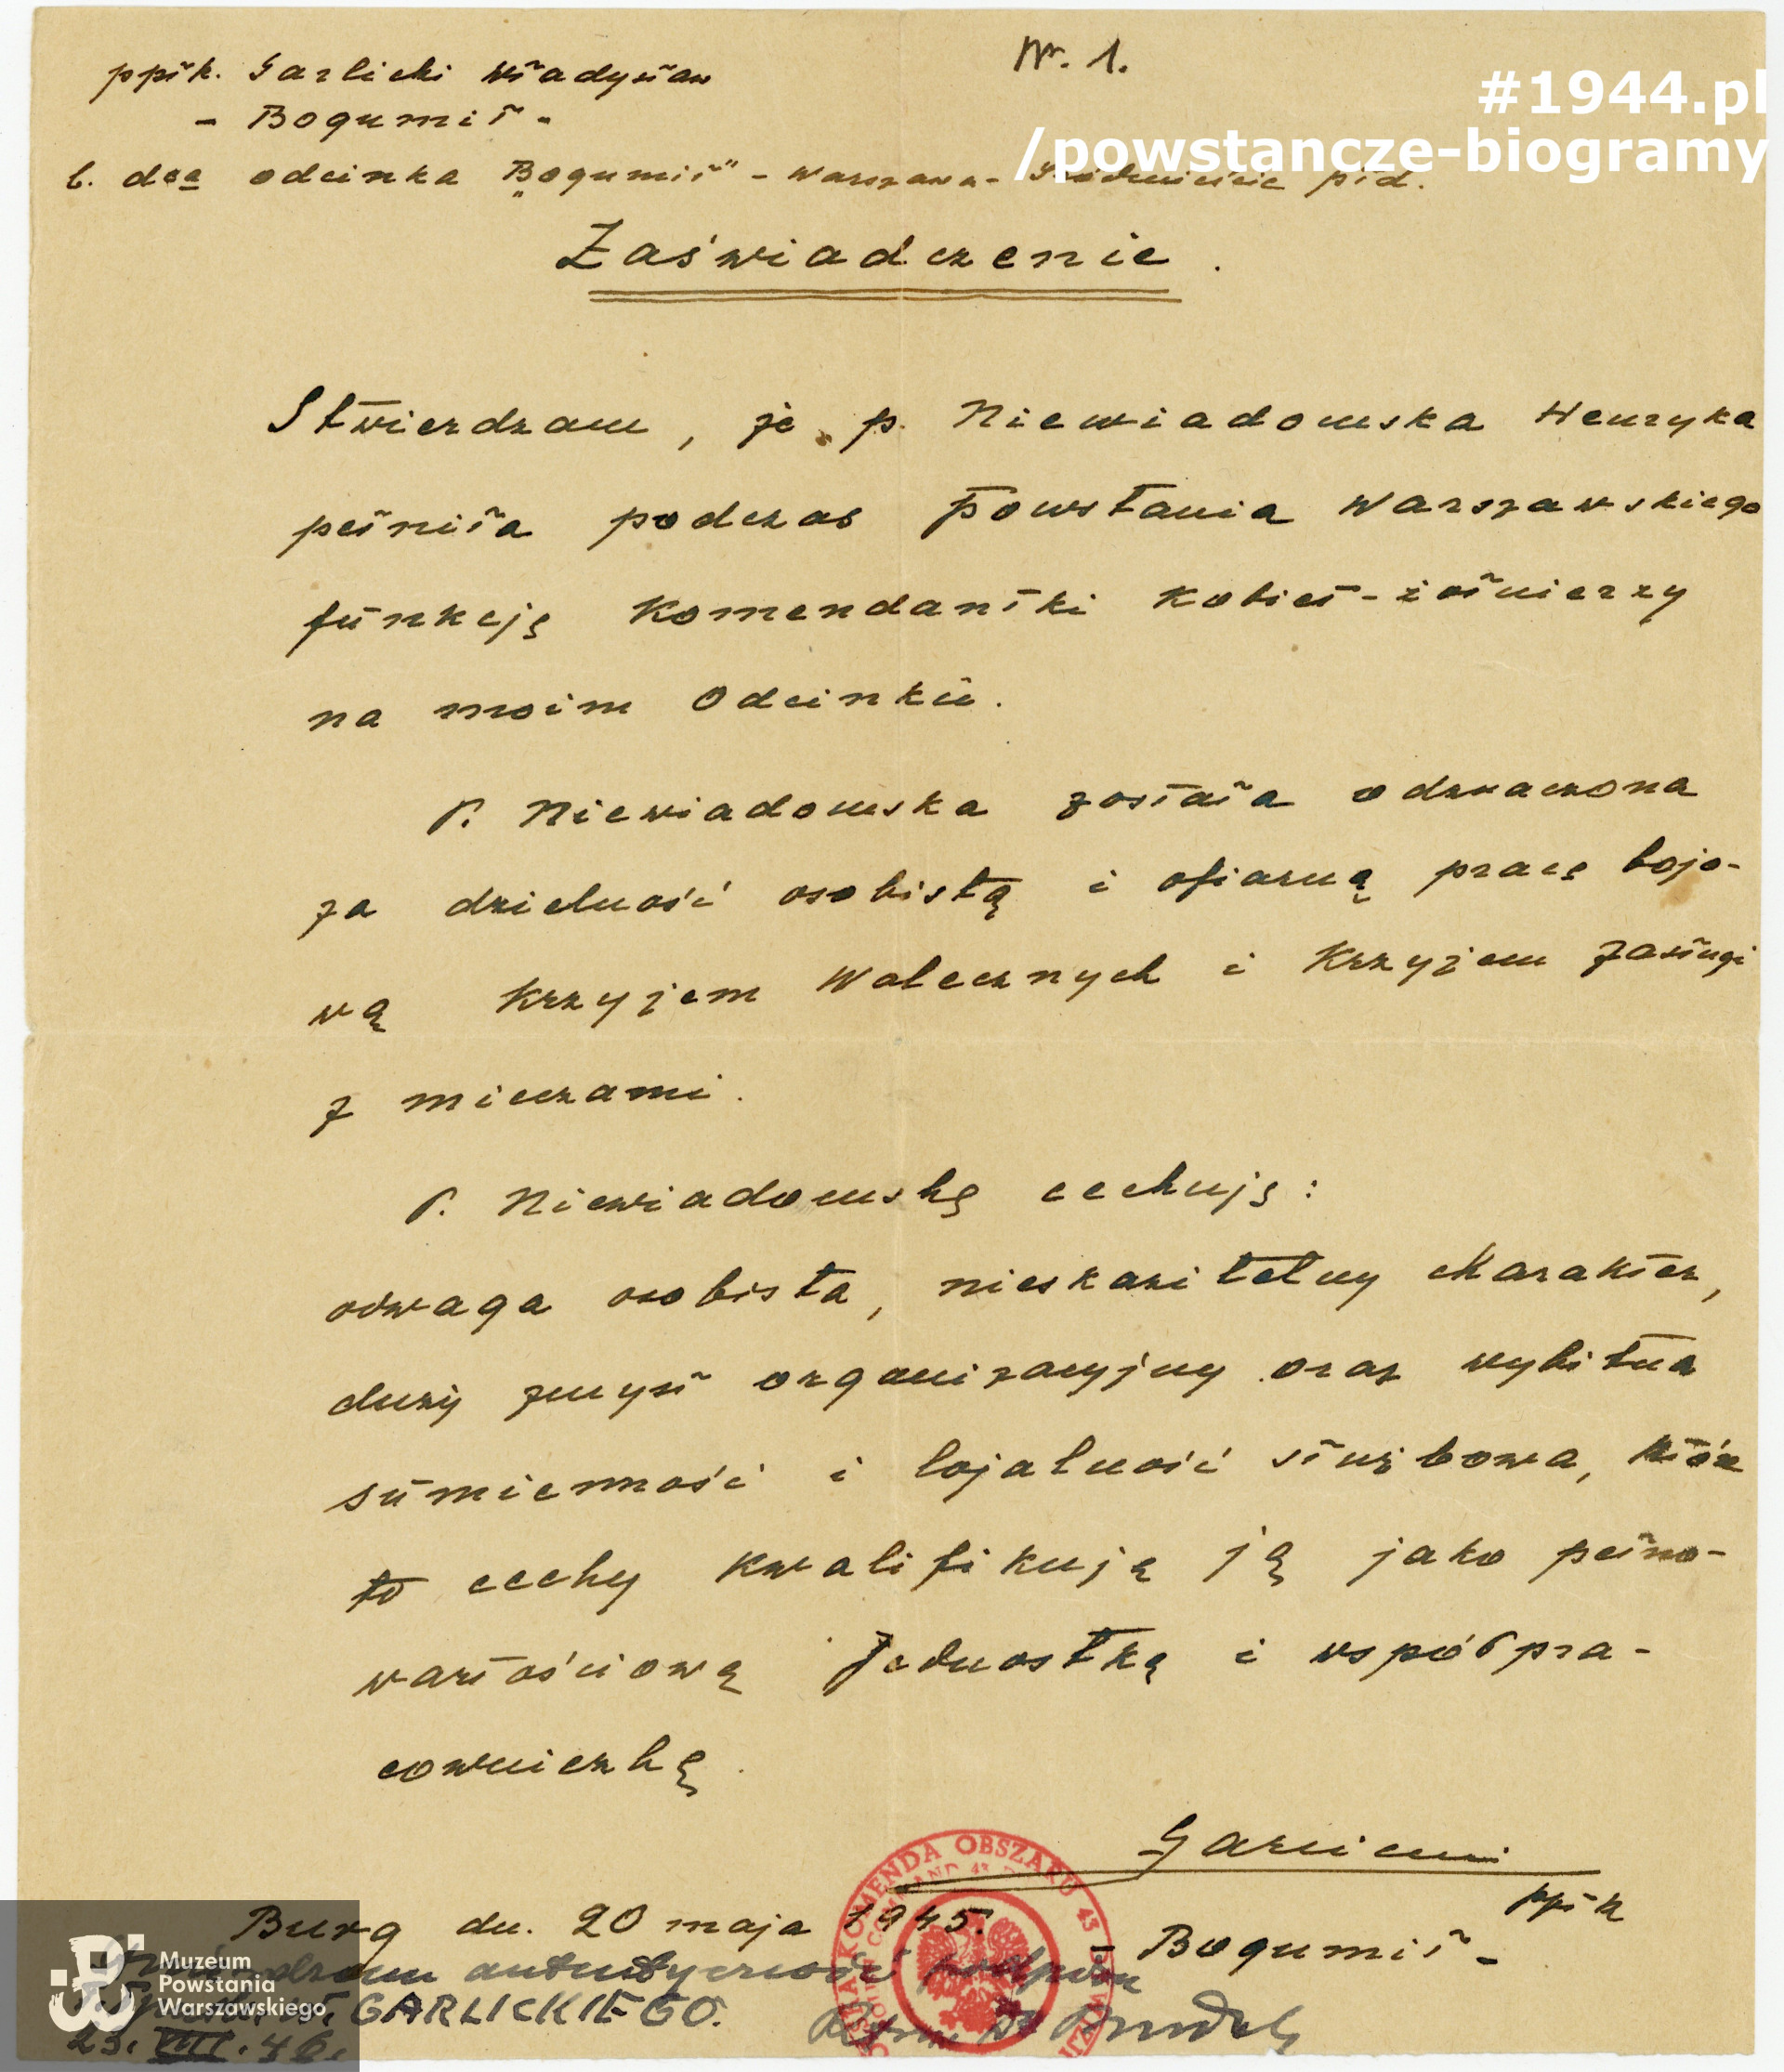 Nr. 1.
#1944.pl
/powstancze-biogramy
ppłk. Garlicki Władysław
- Bogumił -
b. dca odcinka "Bogumił" - Warszawa - Śródmieście płd.
Zaświadczenie.
Stwierdzam, że p. Niewiadomska Henryka
pełniła podczas Powstania Warszawskiego
funkcję Komendantki Kobiet-żołnierzy
na moim Odcinku.
P. Niewiadomska została odznaczona
za dzielność osobistą i ofiarną pracę bojo-
wą Krzyżem Walecznych i Krzyżem Zasługi
z mieczami.
P. Niewiadomską cechuję:
odwaga osobista, nieskazitelny charakter,
duży zmysł organizacyjny oraz wybitna
sumienność i lojalność służbowa, które
to cechy kwalifikują ją jako pełno-
wartościową jednostkę i współpra-
cowniczkę.
Garlicki
ppłk
- Bogumił -
Burg dn. 20 maja 1945.
KOMENDA OBSZARU 43
autentyczność podpisu
GARLICKIEGO.
23. VIII. 46.
Muzeum
Powstania
Warszawskiego